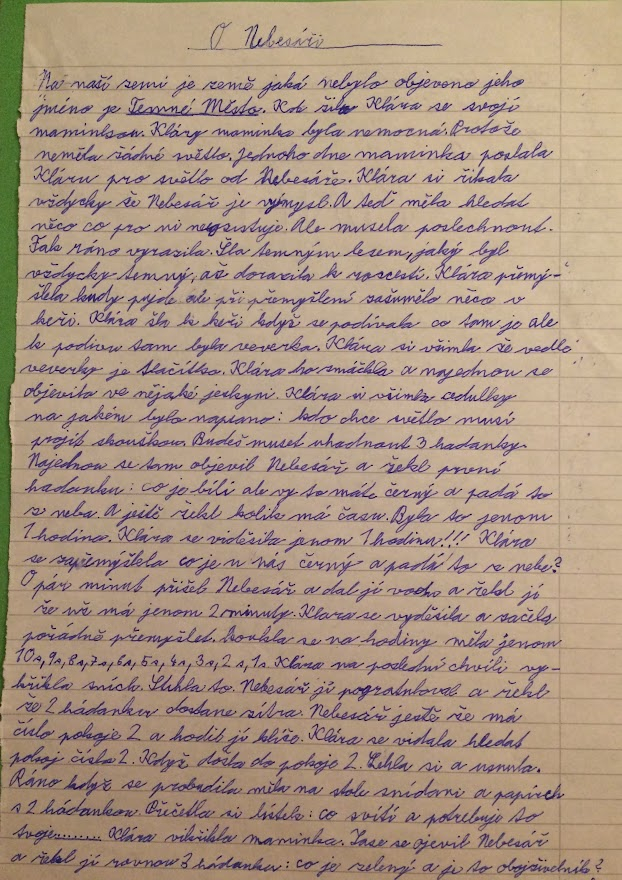 O Nebesáři
Na naší zemi je země jaká nebylo objeveno jeho
jméno je Temné Město. Kd žila Klára se svojí
maminkou. Kláry maminka byla nemocná. Protože
neměla žádné světlo. Jednoho dne maminka poslala
Kláru pro světlo od Nebesáře. Klára si říkala
vždycky že Nebesář je výmysl. A teď měla hledat
něco co pro ni neexistuje. Ale musela poslechnout.
Tak ráno vyrazila. Šla temným lesem, jaký byl
vždycky temný, až dorazila k rozcestí. Klára přemý-
šlela kudy půjde ale při přemýšlení zašumělo něco v
keři. Klára šla k keři když se podívala co tam je ale
k podivu tam byla veverka. Klára si všimla že vedle
veverky je tlačítko. Klára ho zmáčkla a najednou se
objevila ve nějaké jeskyni. Klára si všimla cedulky
na jakém bylo napsano: kdo chce světlo musí
projít zkouškou. Budeš muset uhadnout 3 hadanky.
Najednou se tam objevil Nebesář a řekl první
hadanku: co je bílí ale vy to máte černý a padá to
z neba. A ještě řekl kolik má času. Byla to jenom
1 hodina. Klára se viděsila jenom 1 hodinu!!! Klára
se zapřemýšlela co je u nás černý a padá to z nebe?
O pár minut přišel Nebesář a dal jí vodu a řekl jí
že už má jenom 2 minuty. Klara se vyděsila a začela
pořádně přemýšlet. Koukla se na hodiny měla jenom
10s, 9s, 8s, 7s, 6s, 5s, 4s, 3s, 2s, 1s Klára na poslední chvíli vy-
křikla sních. Stihla to. Nebesář jí pogratuloval a řekl
že 2 hádanku dostane zítra. Nebesář ještě že má
číslo pokoje 2 a hodil jí klíče. Klára se vidala hledat
pokoj čísla 2. Když došla do pokoje 2. Lehla si a usnula.
Ráno když se probudila měla na stole snídani a papírek
s 2 hádankou. Přečetla si lístek: co svítí a potrebuje to
tvoje........ Klára vikřikla maminka. Zase se ojevil Nebesář
a řekl jí rovnou 3 hádanku: co je zelený a je to obojživelník?